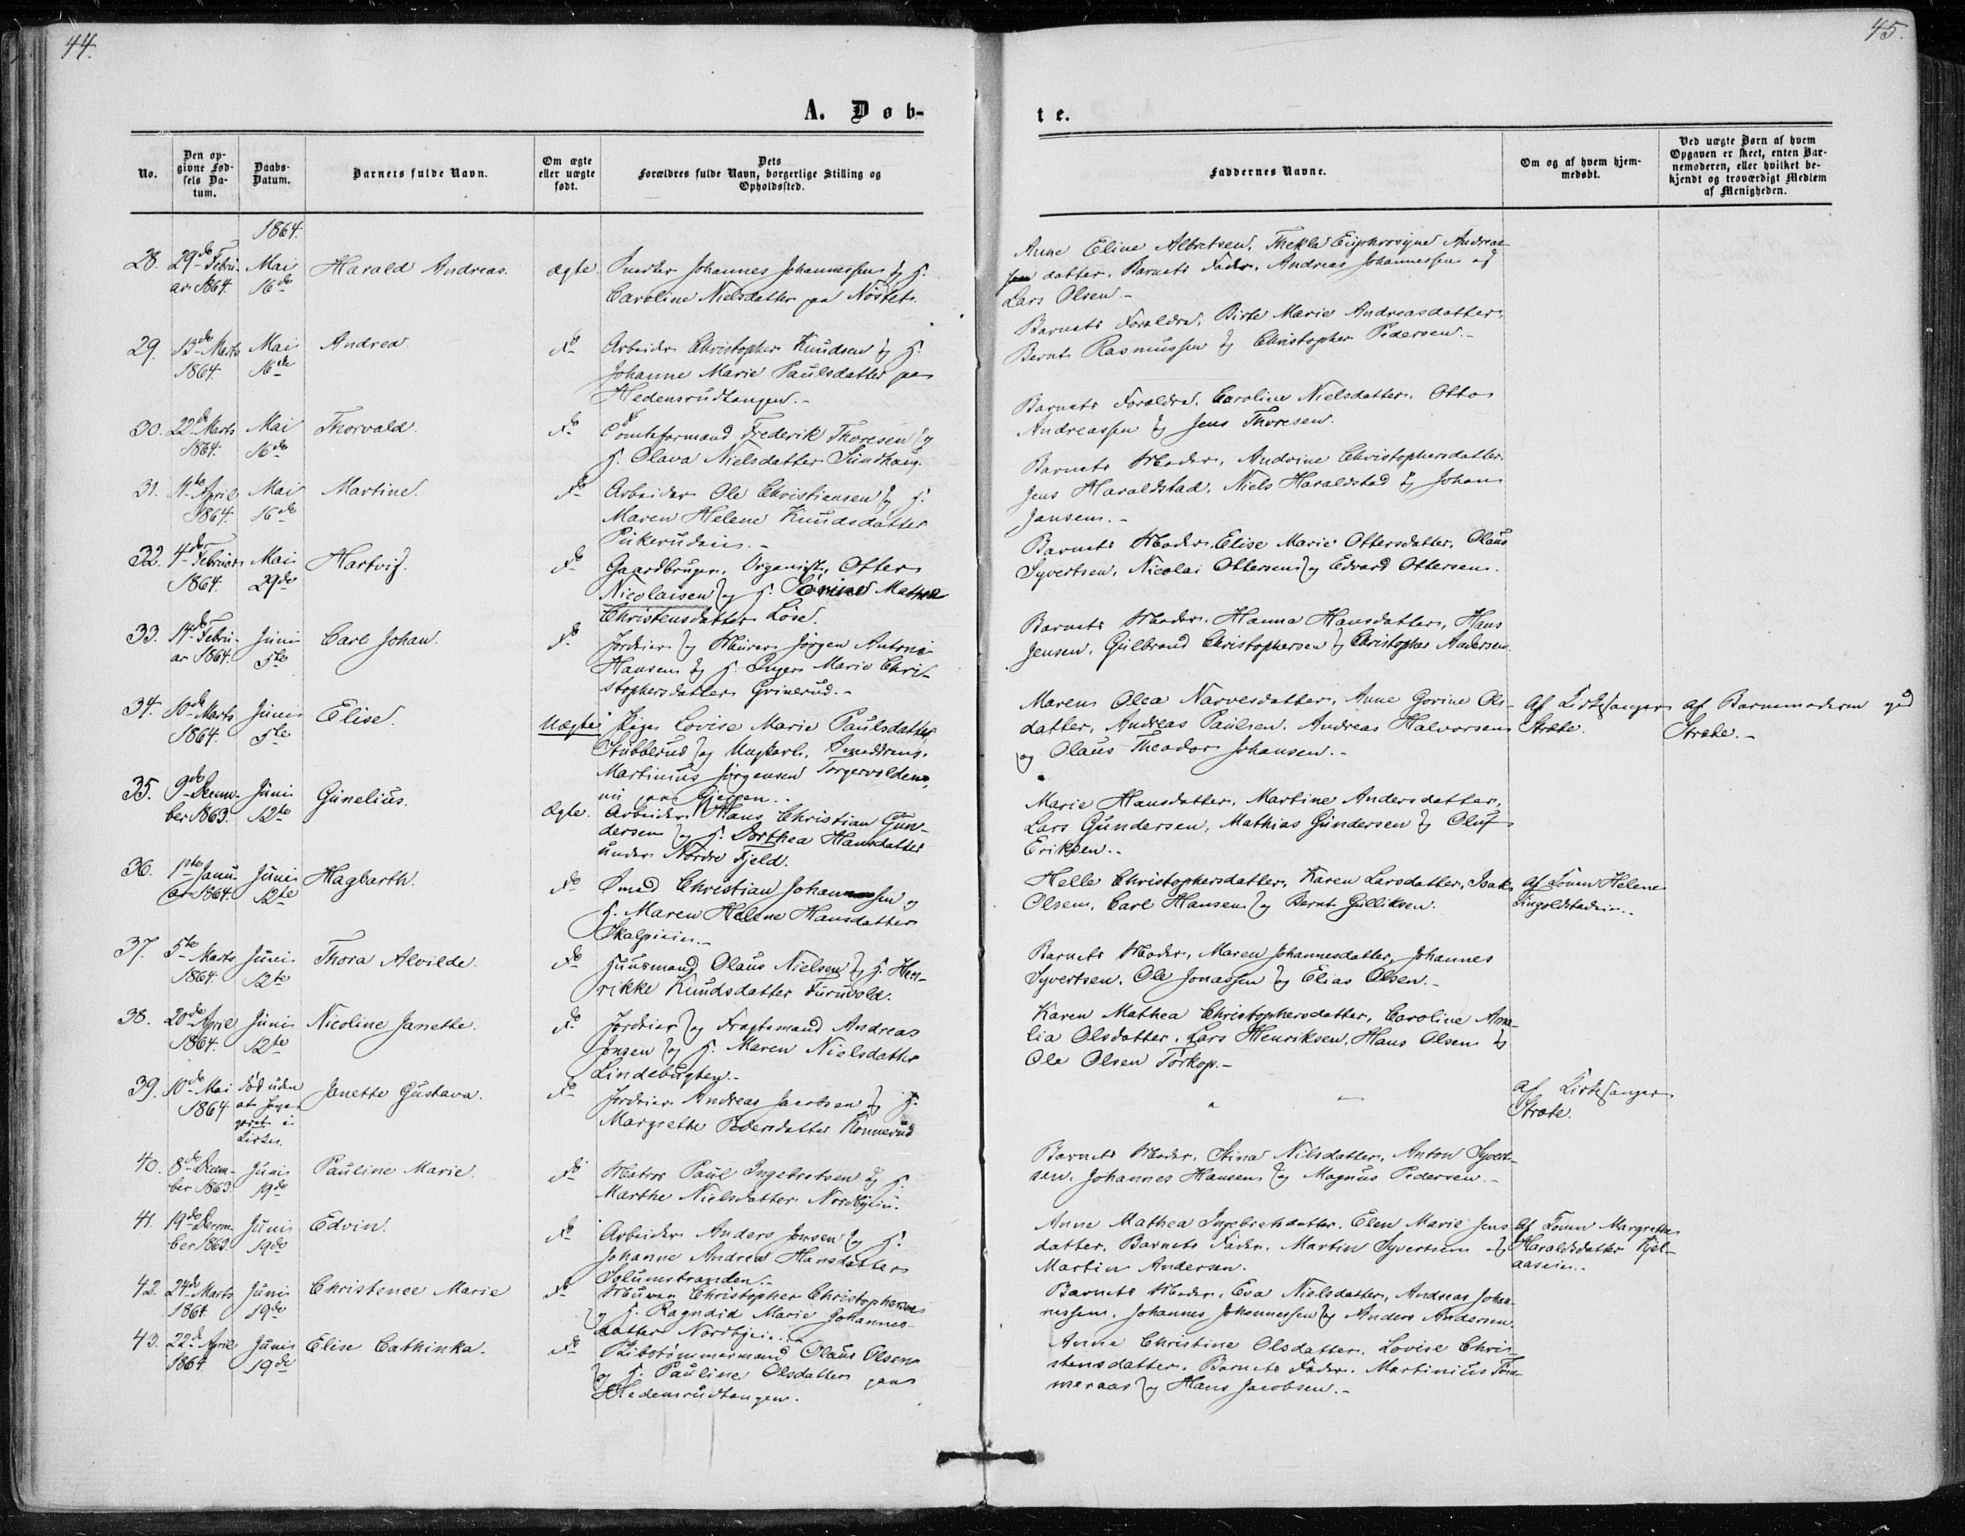 44.
45.
A. Døb-
te.
No.
Den op-
givne Fød-
sels Da-
tum.
Daabs-
Datum.
Barnets fulde Navn.
Om ægte
eller uægte
født.
Dets
Forældres fulde Navn, borgerlige Stilling og
Opholdssted.
Faddernes Navne.
Om og af hvem hjem-
medøbt.
Ved uægte Børn af hvem
Opgaven er skeet, enten Bar-
nemoderen, eller hvilket be-
kjendt og troværdigt Medlem
af Menigheden.
1864.
28. 29de Febru- Mai Harald Andreas. Ægte. Snedker Johannes Johannessen og H.
ar 1864. 16de Caroline Nielsdatter paa Nøstet.
Anne Eline Albretsen, Thekla Euphrosyne Andreas-
datter, Barnets Fader, Andreas Johannessen og
Lars Olsen.-
29. 13de Marts Mai Andrea. do Arbeider Christopher Knudsen og H.
1864. 16de Johanne Marie Paulsdatter paa
Hedensrudtangen.-
Barnets Forældre, Birte Marie Andreasdatter,
Bernt Rasmussen og Christopher Pedersen.-
30. 22de Marts Mai Thorvald. do Comteformand Frederik Thoresen og
1864. 16de H. Olava Nielsdatter Sundhaug.
Barnets Forældre, Caroline Nielsdatter, Otto
Andreassen og Jens Thoresen.
31. 4te April Mai Martine. do Arbeider Ole Christiansen og H.
1864. 16de Maren Helene Knudsdatter
Pukerudeie.-
Barnets Moder, Andrine Christophersdatter,
Jens Haraldstad, Niels Haraldstad og Johan
Jansen.-
32. 4de Februar Mai Hartvig. do Gaardbruger, Organist, Otter
1864. 29de Nicolaisen og H. Lovise Mathea
Christensdatter Løse.
Barnets Moder, Elise Marie Ottersdatter, Olaus
Syvertsen, Nicolai Ottersen og Edvard Ottersen.
33. 14de Febru- Juni Carl Johan. do Jordeier og Murer Jørgen Anton
ar 1864. 5te Hansen og H. Inger Marie Chri-
stophersdatter Grinerud.-
Barnets Moder, Hanna Hansdatter, Hans
Jensen, Gulbrand Christophersen og Christopher Andersen.
34. 10de Marts Juni Elise. Uægte Pige Lovise Marie Paulsdatter
1864. 5te Stubberud og Ungkarl, Smeddreng,
Martinius Jørgensen Torgersolden,
nu paa Gjerpen.-
Maren Olea Narvesdatter, Anne Gorine Ols-
datter, Andreas Paulsen, Andreas Halvorsen
og Olaus Theodor Johansen.-
Af Kirkesanger
Stræte.
Af Barnemoderen og
Stræte.-
35. 9de Decem- Juni Gunelius. Ægte. Arbeider Hans Christian Gun-
ber 1863. 12te dersen og H. Dorthea Hansdatter
under Nordre Fjeld.
Marie Hansdatter, Martine Andersdatter,
Lars Gundersen, Mathias Gundersen og Oluf
Eriksen.-
36. 1ste Janu- Juni Hagbarth. do Smed Christian Johannessen og
ar 1864. 12te H. Maren Helene Hansdatter
Skalpieie.-
Helle Christophersdatter, Karen Larsdatter, Isak
Olsen, Carl Hansen og Bernt Gulliksen.
Af Konen Helene
Ingoldstadeie.-
37. 5te Marts Juni Thora Alvilde. do Huusmand Olaus Nielsen og H. Hen-
1864. 12te rikke Knudsdatter Furuvold.
Barnets Moder, Maren Johannesdatter, Johannes
Syvertsen, Ole Jonassen og Elias Olsen.-
38. 20de April Juni Nicoline Janette. do Jordeier og Fragtemand Andreas
1864. 12te Jonsen og H. Maren Nielsdatter
Lindebugten.-
Karen Mathea Christophersdatter, Caroline Ama-
lia Olsdatter, Lars Henriksen, Hans Olsen og
Ole Olsen Torkop.-
39. 10de Mai Død uden Janette Gustava. do Jordeier Andreas Jacobsen og H.
1864. at være Margrethe Pedersdatter Konnerud
været i
Kirken.
Af Kirkesanger
Stræte.
40. 8de Decem- Juni Pauline Marie. do Matros Paul Ingebretsen og H.
ber 1863. 19de Marthe Nielsdatter Nordbylie.
Barnets Moder, Stina Nilsdatter, Anton Syvert-
sen, Johannes Hansen og Magnus Pedersen.-
41. 19de Decem- Juni Edvin. do Arbeider Anders Jonsen og H.
ber 1863. 19de Johanne Andrea Hansdatter
Solumstranden.-
Anne Mathea Ingebretsdatter, Elen Marie Jens-
datter, Barnets Fader, Martin Syvertsen og
Martin Andersen.
Af Konen Margrethe
Haraldsdatter Kjel-
aaseie.-
42. 24de Marts Juni Christence Marie do Murer Christopher Christophersen
1864. 19de og H. Ragndid Marie Johannes-
datter Nordbyeie.-
Barnets Moder, Eva Nielsdatter, Andreas Johan-
nessen, Johannes Johannessen og Anders Andersen.
43. 22de April Juni Elise Cathinka. do Skibstømmermand Olaus Olsen
1864. 19de og H. Pauline Olsdatter paa
Hedensrudtangen.
Anne Christine Olsdatter, Lovise Chris-
tensdatter, Barnets Fader, Martinius Tom-
meraas og Hans Jacobsen.-